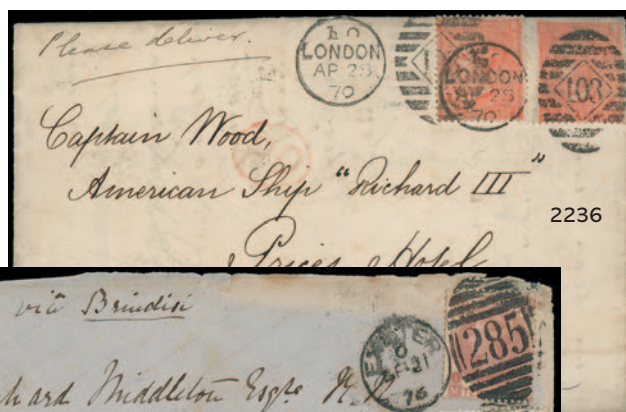 Please deliver.
LONDON
AP 28
70
LONDON
28
70
103
Captain Wood,
American Ship "Richard III"
2236
Prices Hotel
via Brindisi
EXETER
SP 21
76
285
Middleton Esqre R.N.